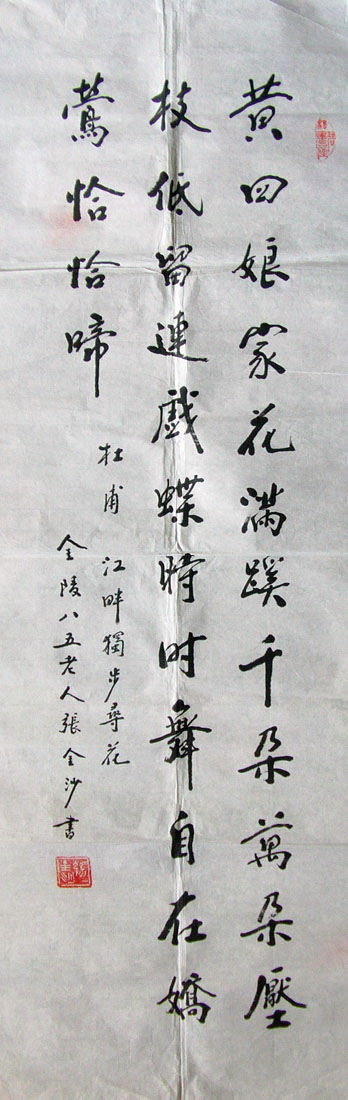 黄四娘家花滿蹊千朵萬朵壓
枝低留連戲蝶時时舞自在嬌
鶯恰恰啼
杜甫 江畔獨步尋花
金陵八五老人張金沙書